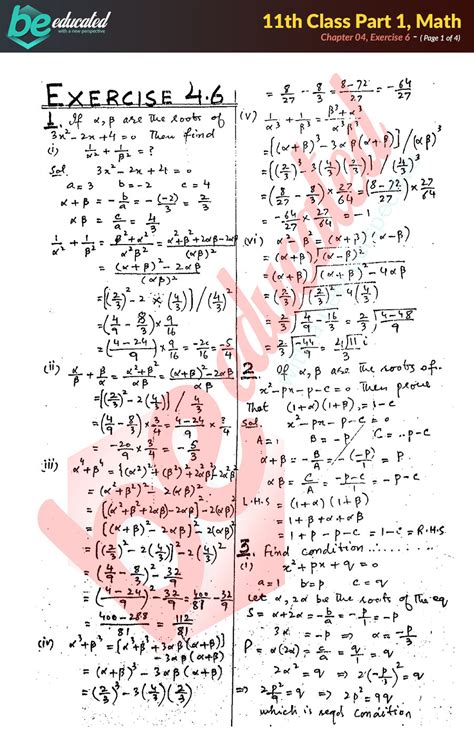 be educated
with a new perspective
11th Class Part 1, Math
Chapter 04, Exercise 6 - ( Page 1 of 4)
EXERCISE 4.6
1. If α, β are the roots of
3x² - 2x + 4 = 0 Then find
(i) 1/α² + 1/β² = ?
Sol. 3x² - 2x + 4 = 0
a = 3 b = -2 c = 4
α + β = -b/a = -(-2)/3 = 2/3
αβ = c/a = 4/3
1/α² + 1/β² = (β² + α²)/(α²β²) = (α² + β² + 2αβ - 2αβ)/(αβ)²
= ((α + β)² - 2αβ)/(αβ)²
= [(2/3)² - 2 × (4/3)] / (4/3)²
= (4/9 - 8/3) × 9/16
= (4 - 24)/9 × 9/16 = -20/16 = -5/4
(ii) α/β + β/α = (α² + β²)/αβ = ((α + β)² - 2αβ)/αβ
= [(2/3)² - 2(4/3)] / 4/3
= (4/9 - 8/3) × 3/4 = (4 - 24)/9 × 3/4
= -20/9 × 3/4 = -5/3
iii) α⁴ + β⁴ = {(α²)² + (β²)² + 2α²β² - 2α²β²
= (α² + β²)² - 2α²β²
= [(α² + β² + 2αβ - 2αβ]² - 2α²β²
= [(α + β)² - 2αβ]² - 2α²β²
= [(2/3)² - 2(4/3)]² - 2(4/3)²
= (4/9 - 8/3)² - 32/9
= (4 - 24/9)² - 32/9 = 400/81 - 32/9
= (400 - 288)/81 = 112/81
(iv) α³ + β³ = [α³ + β³ + 3αβ(α + β)]
- 3αβ(α + β)
= (α + β)³ - 3αβ(α + β)
= (2/3)³ - 3(4/3)(2/3)
= 8/27 - 8/3 = (8 - 72)/27 = -64/27
(v) 1/α³ + 1/β³ = (β³ + α³)/(α³β³)
= [(α + β)³ - 3αβ(α + β)] / (αβ)³
= [(2/3)³ - 3(4/3)(2/3)] / (4/3)³
= (8/27 - 8/3) × 27/64 = (8 - 72)/27 × 27/64
= -64/27 × 27/64 = -1
(vi) α² - β² = (α + β)(α - β)
= (α + β)√(α - β)²
= (α + β)√((α + β)² - 4αβ)
= (2/3)√((2/3)² - 4(4/3))
= 2/3 √(4/9 - 16/3) = 2/3 √((4 - 48)/9)
= 2/3 √(-44/9) = 4√11/9 i
2. If α, β are the roots of
x² - px - p - c = 0 Then prove
That (1 + α)(1 + β) = 1 - c
Sol. x² - px - p - c = 0
A = 1 B = -p C = -p - c
α + β = -B/A = -(-p)/1 = p
αβ = C/A = (-p - c)/1 = -p - c
L.H.S = (1 + α)(1 + β)
= 1 + β + α + αβ
= 1 + p - p - c = 1 - c = R.H.S
3. Find condition ......
(i) x² + px + q = 0
a = 1 b = p c = q
Let α, 2α be the roots of the eq
S = α + 2α = -b/a = -p/1 = -p
3α = -p ⇒ α = -p/3
P = α(2α) = c/a = q/1 = q
⇒ 2α² = q ⇒ 2(-p/3)² = q
⇒ 2p²/9 = q ⇒ 2p² = 9q
which is reqd condition
be educated